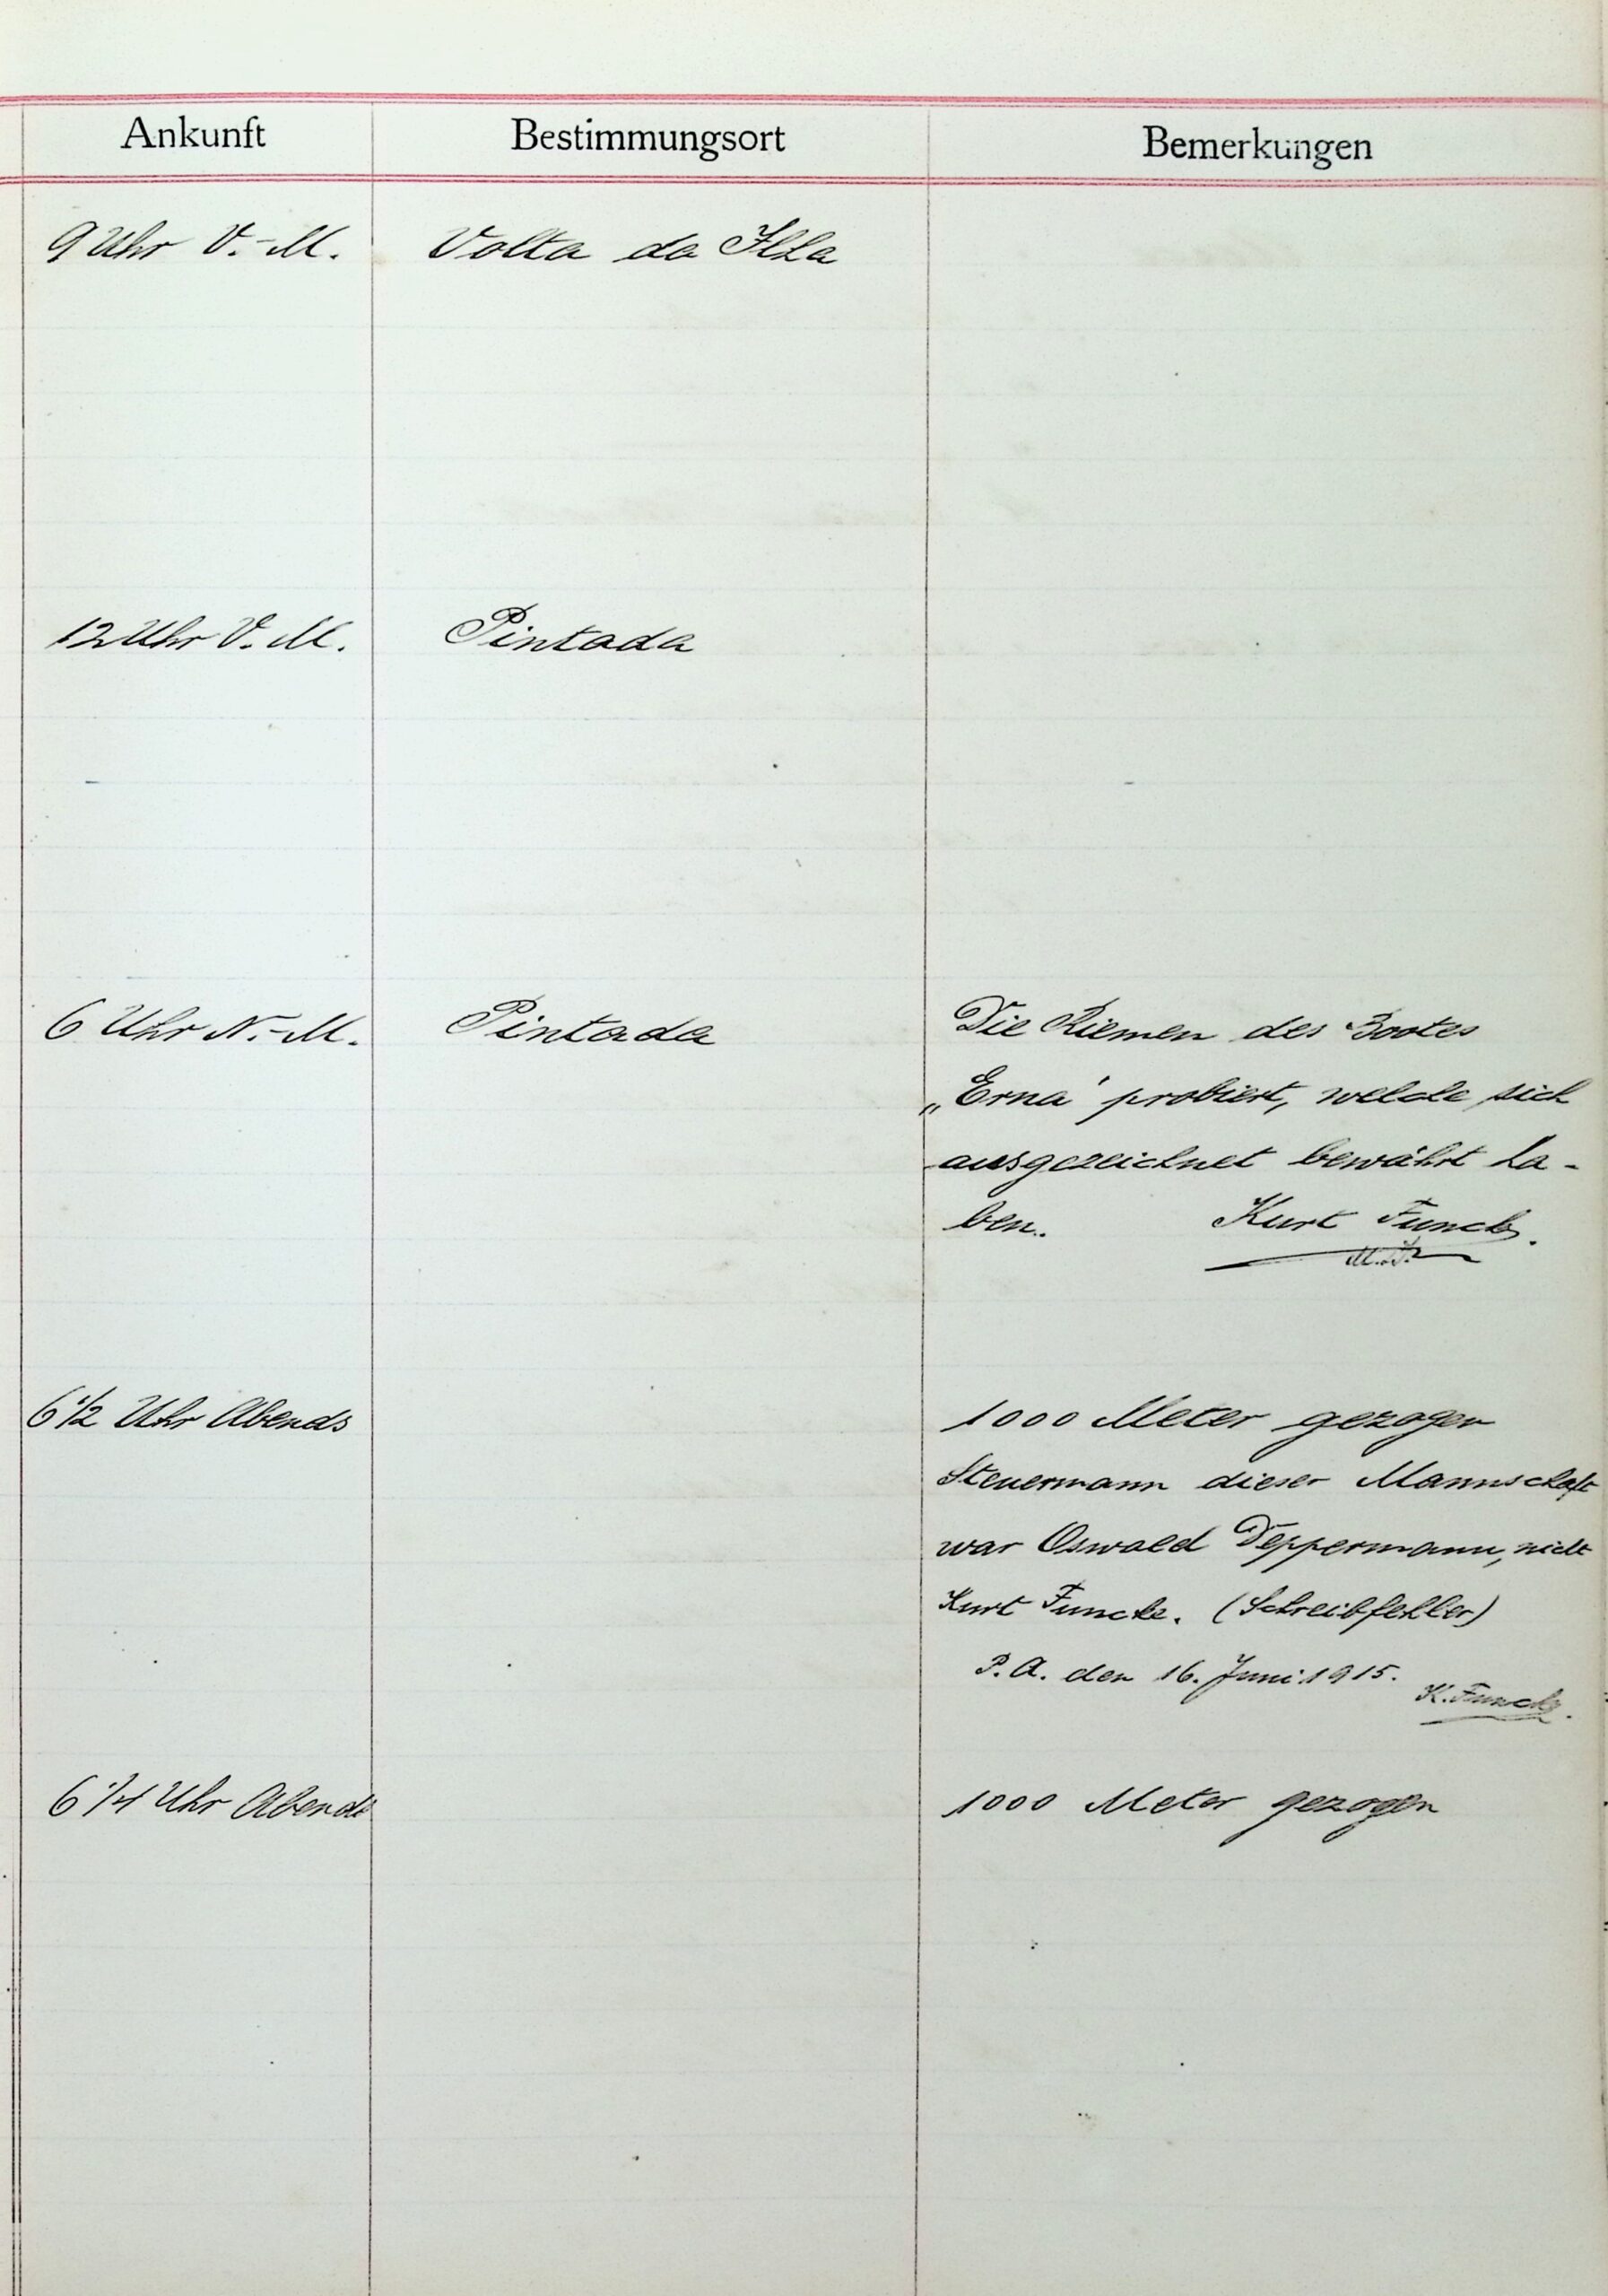 Ankunft Bestimmungsort Bemerkungen
9 Uhr V.-M. Volta da Ilha
12 Uhr V. M. Pintada
6 Uhr N.-M. Pintada Die Riemen des Bootes
„Erna" probiert, welche sich
ausgezeichnet bewährt ha-
ben. Kurt Funcke.
6 1/2 Uhr Abends 1000 Meter gezogen
Steuermann dieser Mannschaft
war Oswald Deppermann, nicht
Kurt Funcke. (Schreibfehler)
P. A. den 16. Juni 1915.
K. Funcke.
6 1/4 Uhr Abends 1000 Meter gezogen